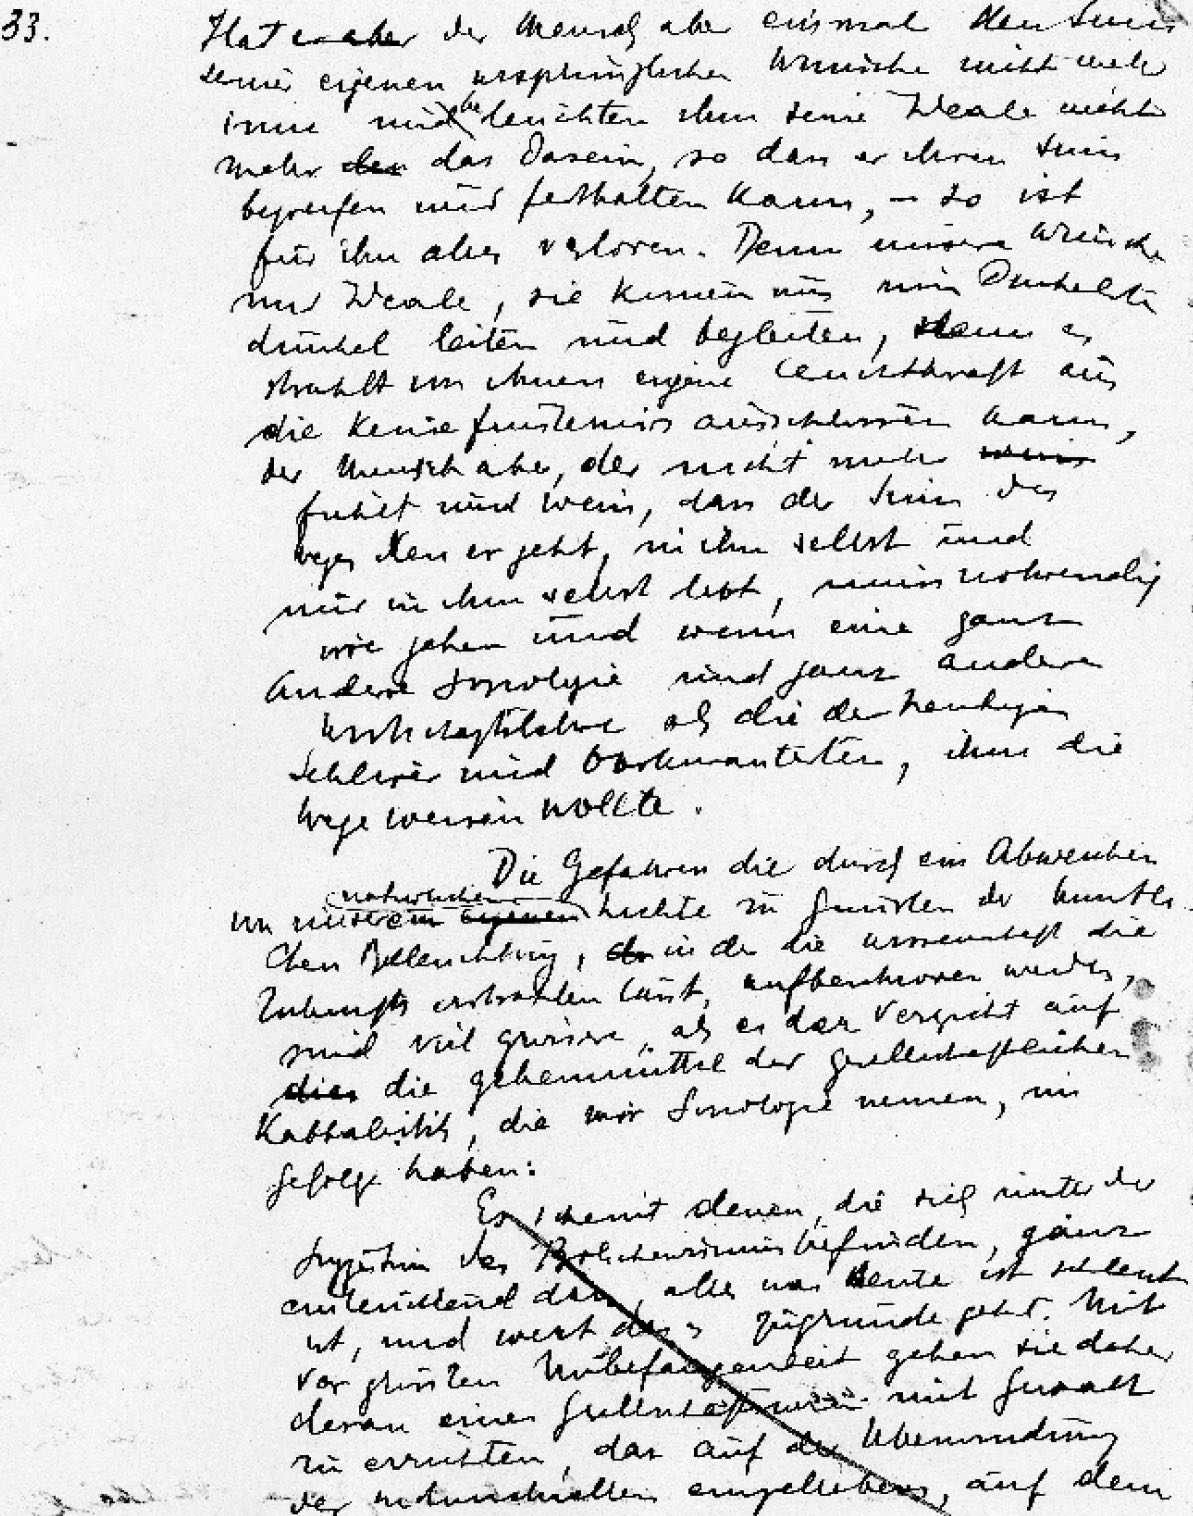 33.
Hat der Mensch aber einmal den Sinn
seiner eigenen ursprünglichen Wünsche nicht mehr
inne und beleuchten ihm seine Ideale nicht
mehr das Dasein, so dass er ihren Sinn
begreifen und festhalten kann, – so ist
für ihn alles verloren. Denn unsere Wünsche
und Ideale, sie können uns im Dunkelsten
dunkel leiten und begleiten, denn es
strahlt von ihnen eigene Leuchtkraft aus
die keine Finsternis auslöschen kann,
der Mensch aber, der nicht mehr
fühlt und weis, dass der Sinn des
Weges den er geht, in ihm selbst und
nur in ihm selbst lebt, muss notwendig
irre gehen und wenn eine ganz
andere Soziologie und ganz andere
Wirtschaftslehre als die der heutigen
und Obskurantisten, ihm die
Wege weisen wollte.
Die Gefahren die durch ein Abweichen
von unserem natürlichen Lichte zu Gunsten der künstli-
chen Beleuchtung, in der die Wissenschaft die
Zukunft erstrahlen lässt, heraufbeschworen werden,
sind viel grössere, als es der Verzicht auf
die geheimmittel der gesellschaftlichen
Kabbalistik, die wir Soziologie nennen, im
Gefolge haben:
Es scheint denen, die sich unter der
Suggestion des Bolschewismus befinden, ganz
einleuchtend dass, alles was heute ist schlecht
ist, und wert dass es zugrunde geht. Mit
der grössten Unbefangenheit gehen sie daher
daran eine mit Gewalt
zu errichten, das auf der Überwindung
der auf dem